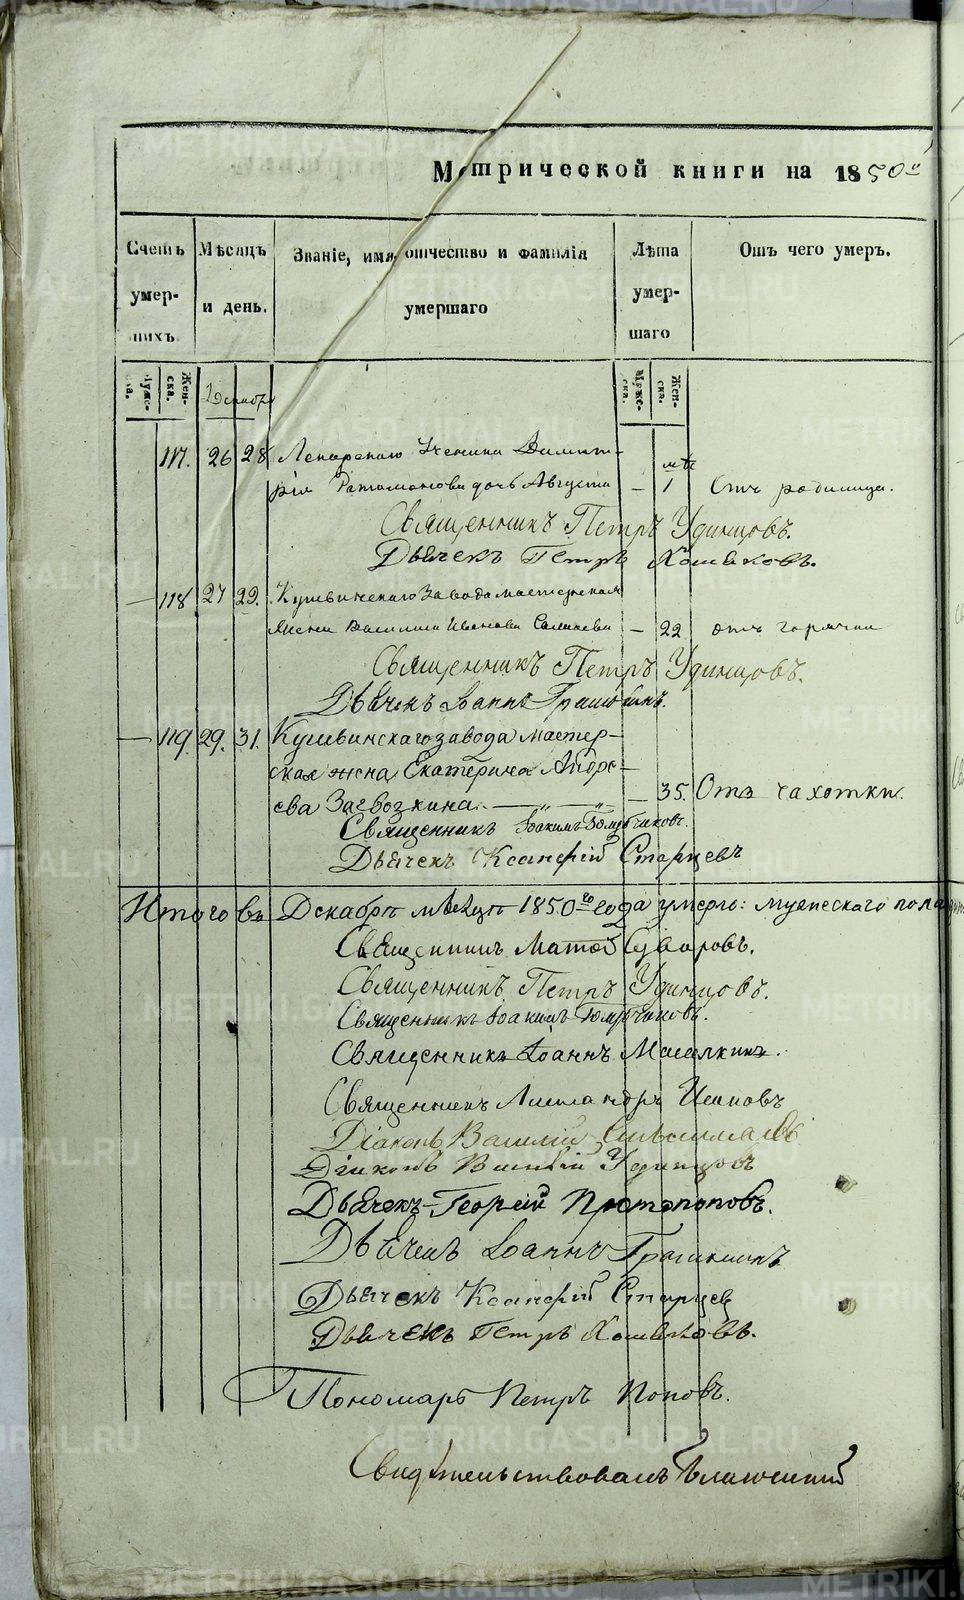 Метрической книги на 1850й
Счетъ умершихъ
Мѣсяцъ и день.
Званіе, имя, отчество и фамилія умершаго
Лѣта умершаго
Отъ чего умеръ.
Мужеска.
Женска.
Декабрь
Мужеска.
Женска.
117. 26 28 Лекарскаго Ученика Димит-
рія дочь Августа – 1 Отъ родимца.
Священникъ Петръ Удинцовъ.
Дьячекъ Петръ Хомяковъ.
– 118 27 29. Кушвинскаго Завода мастерская
жена Василиса Иванова – 22 отъ горячки
Священникъ Петръ Удинцовъ.
Дьячекъ Іоаннъ
– 119. 29. 31. Кушвинскаго завода мастер-
ская жена Екатерина Андре-
ева Загвозкина. – 35. Отъ чахотки.
Священникъ Іоакимъ Голубчиковъ.
Дьячекъ Ксанфій Старцевъ
Итого въ Декабрѣ мѣсяцѣ 1850го года умерло: мужескаго пола
Священникъ Матѳей Суворовъ.
Священникъ Петръ Удинцовъ.
Священникъ Іоакимъ Голубчиковъ.
Священникъ Іоаннъ
Священникъ Александръ
Діаконъ Василій
Діаконъ Василій Удинцовъ
Дьячекъ Георгій Протопоповъ.
Дьячекъ Іоаннъ
Дьячекъ Ксанфій Старцев
Дьячекъ Петръ Хомяковъ.
Пономарь Петръ Поповъ.
Свидѣтельствовалъ
METRIKI.GASO-URAL.RU